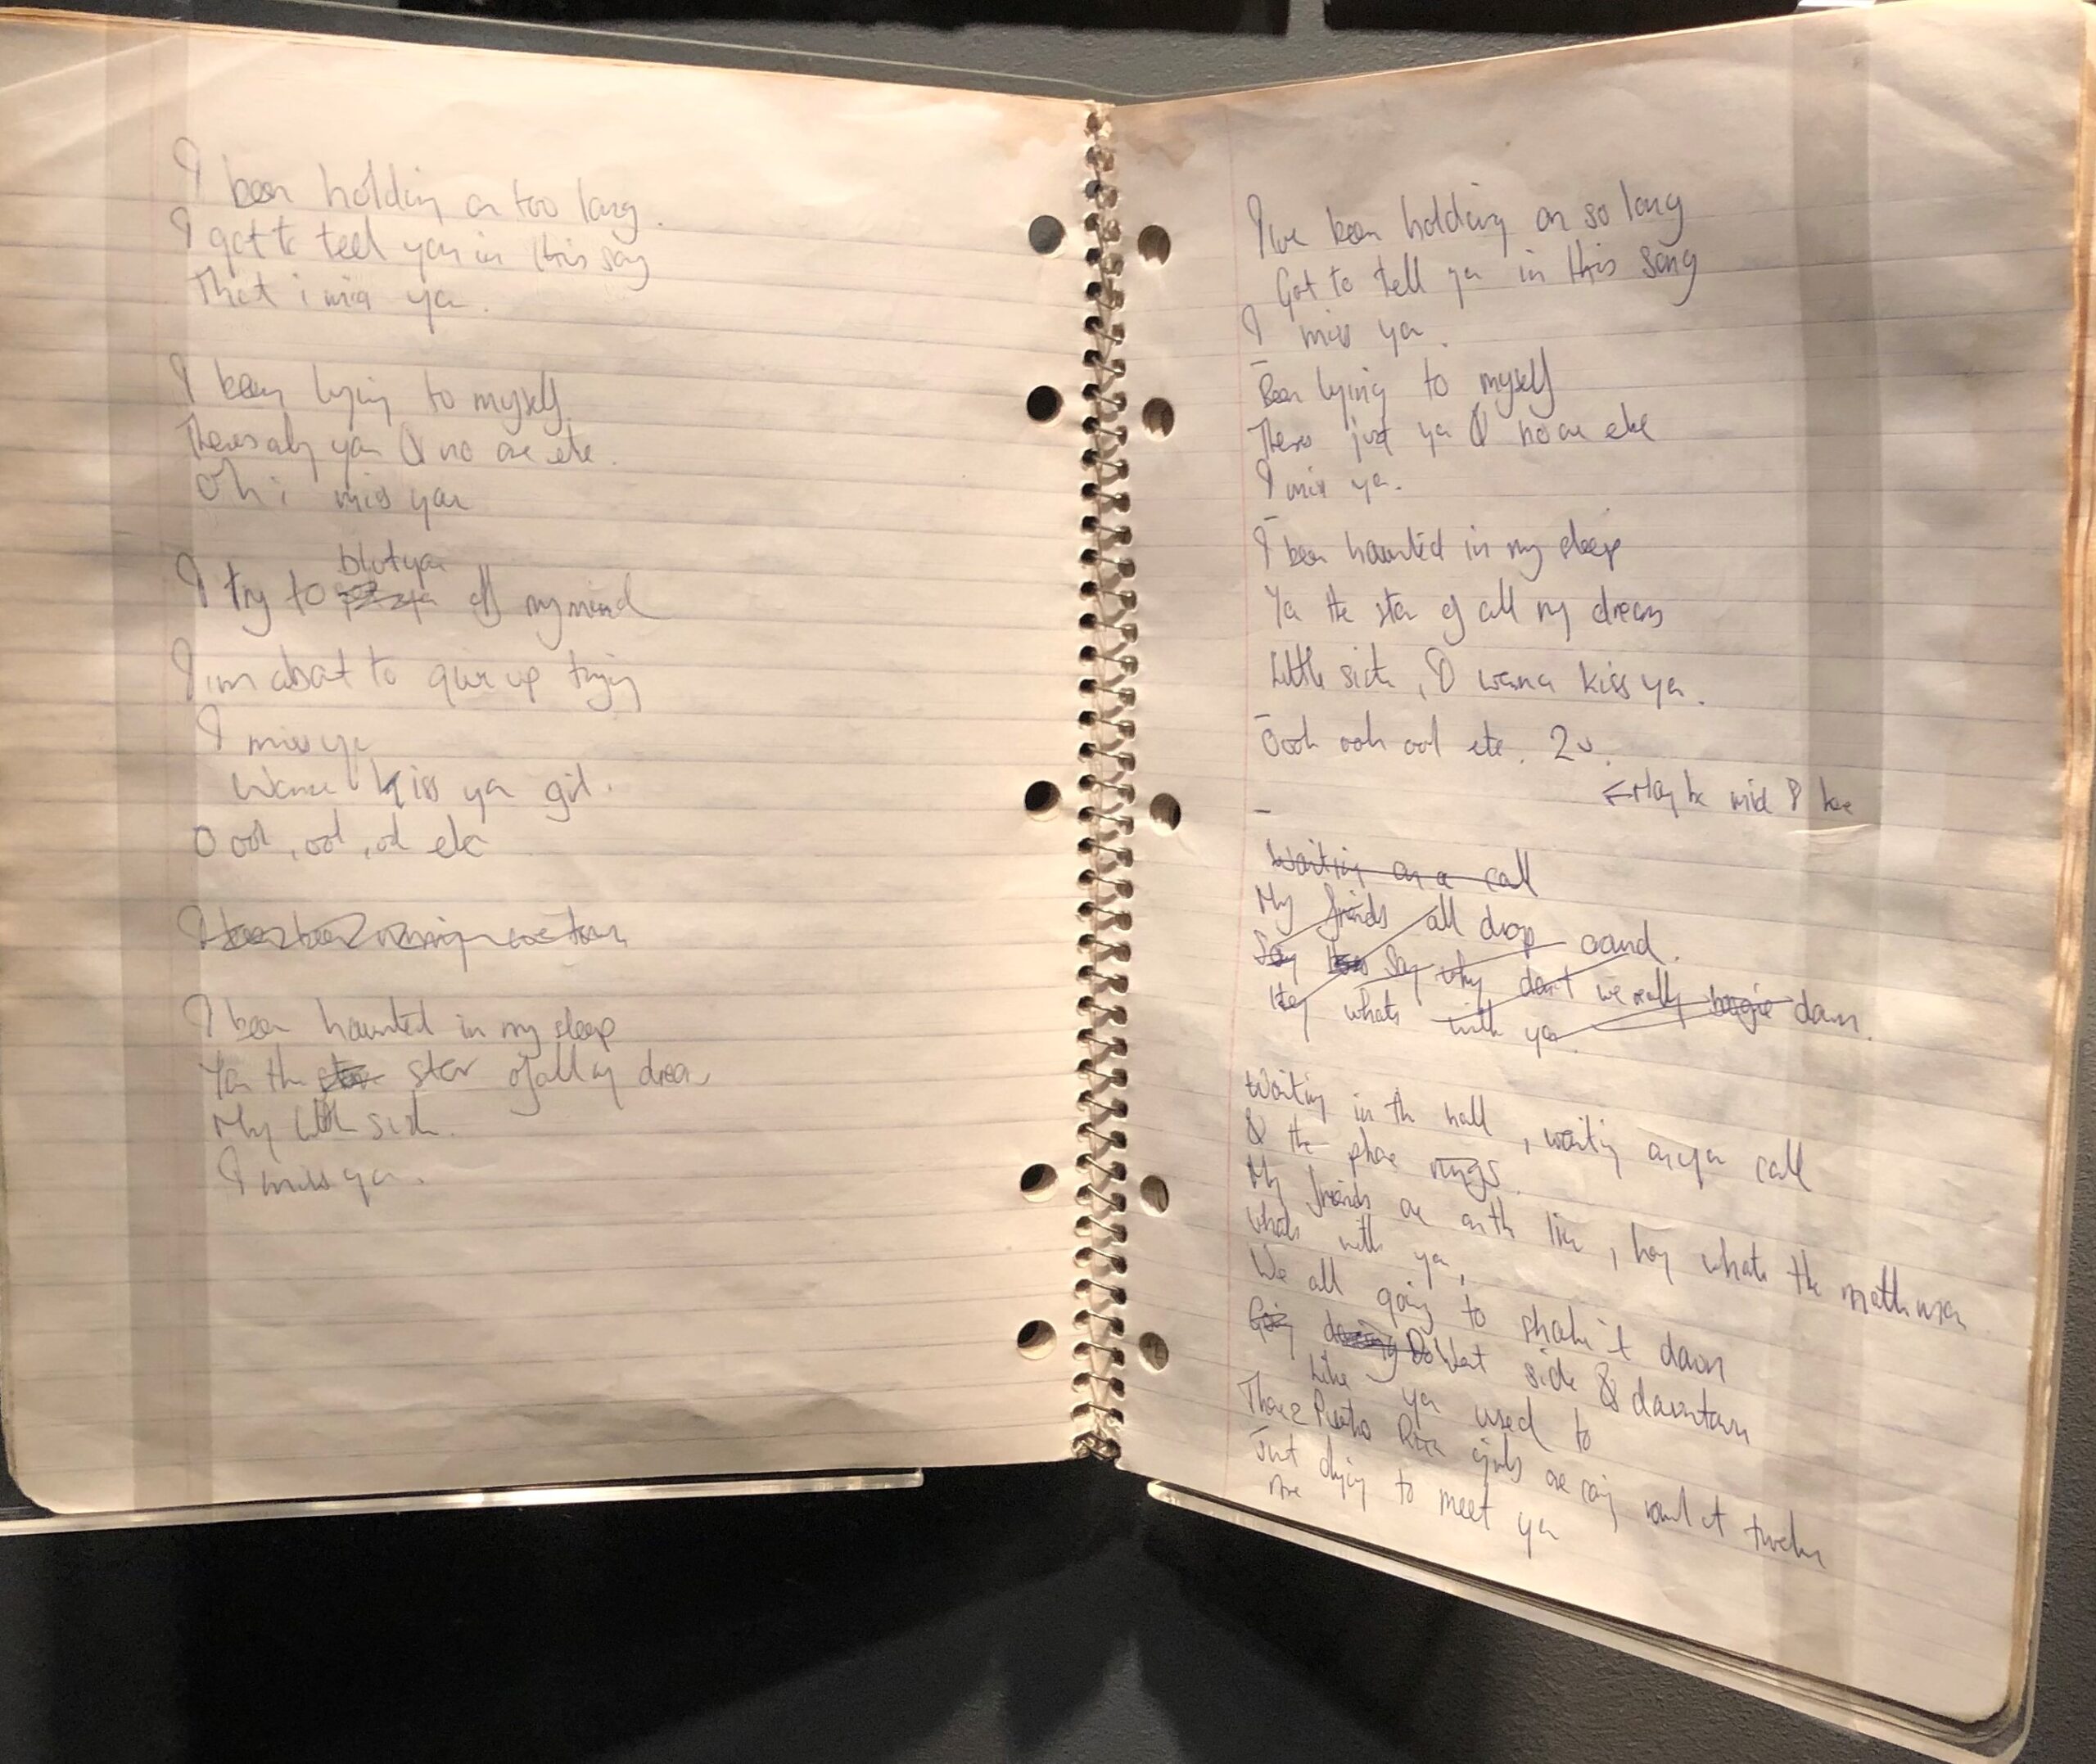 I been holding on too long.
I got to teel you in this song
That i miss ya.
I been lying to myself
Theres only you & no one else.
Oh i miss you
blot you
I try to off my mind
I im about to give up trying
I miss ya
Wanna kiss ya girl.
Oooh, ooh, ooh etc
I been haunted in my sleep
You the star star of all my dream
My little sister.
I miss ya.
I've been holding on so long
Got to tell ya in this song
I miss ya.
Been lying to myself
Theres just ya & no one else
I miss ya.
I been haunted in my sleep
Ya the star of all my dreams
Little sister, I wanna kiss ya.
Oooh ooh ooh etc. 2
Waiting on a call
My friends all drop around.
Say Say why don't we really boogie down.
Hey whats with ya.
Waiting in the hall, waiting on your call
& the phone rings.
My friends are on the line, hey whats the matter man
Whats with ya,
We all going to shake it down
Going dancing West side & downtown
Like ya used to
Thare 2 Puerto Rica girls are coming round at twelve
Just dying to meet ya